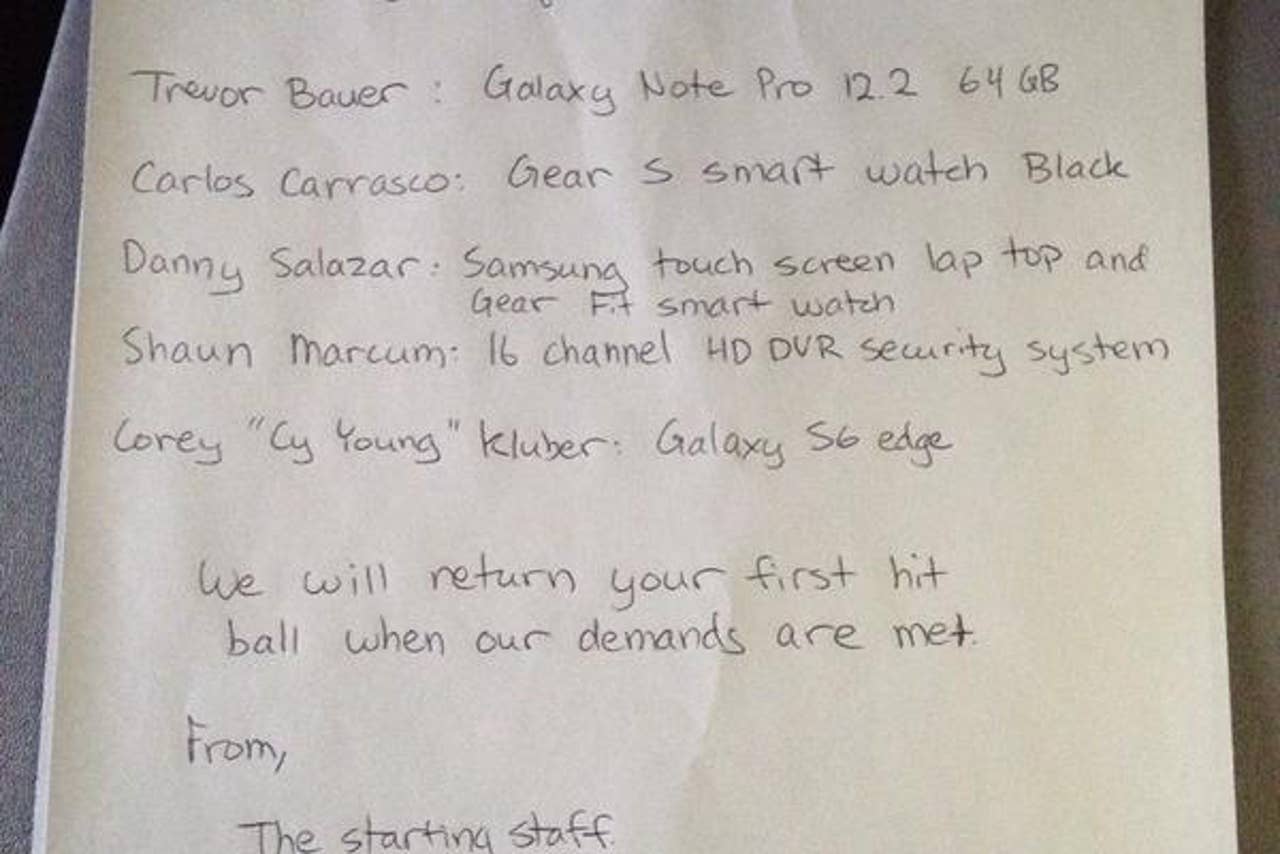 Trevor Bauer: Galaxy Note Pro 12.2 64 GB
Carlos Carrasco: Gear S smart watch Black
Danny Salazar: Samsung touch screen lap top and
Gear Fit smart watch
Shaun Marcum: 16 channel HD DVR security system
Corey "Cy Young" Kluber: Galaxy S6 edge
We will return your first hit
ball when our demands are met.
From,
The starting staff.